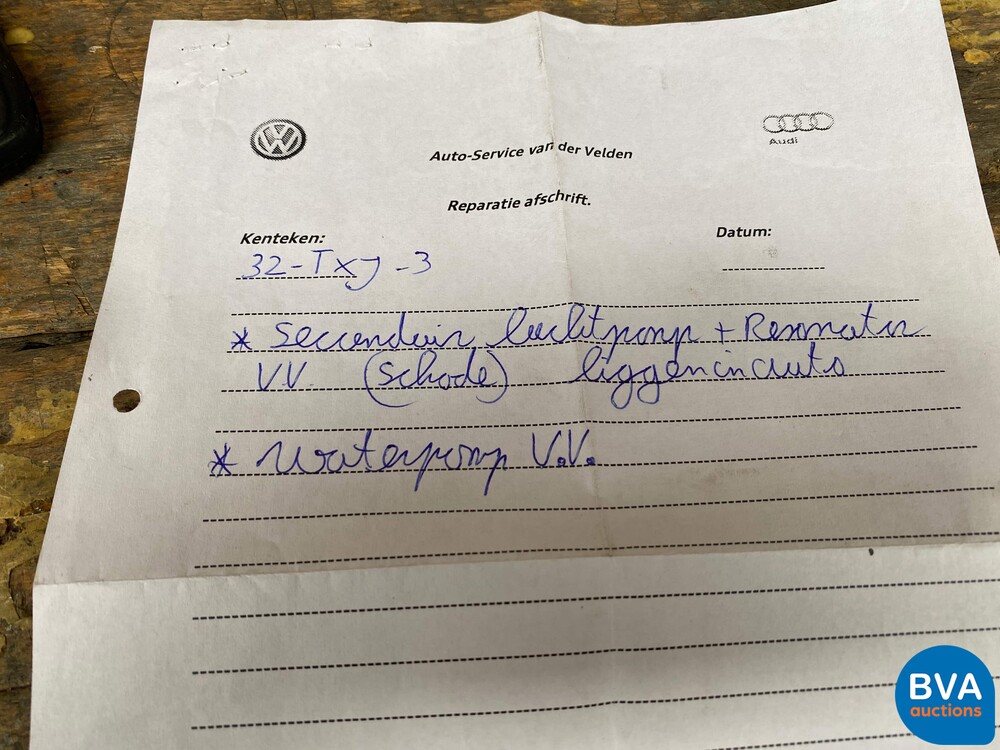 Auto-Service van der Velden
Audi
Reparatie afschrift.
Kenteken: Datum:
32-TXJ-3
* Seccendair luchtpomp + Resonator
V.V. (schade) liggen in auto
* Waterpomp V.V.
BVA
auctions